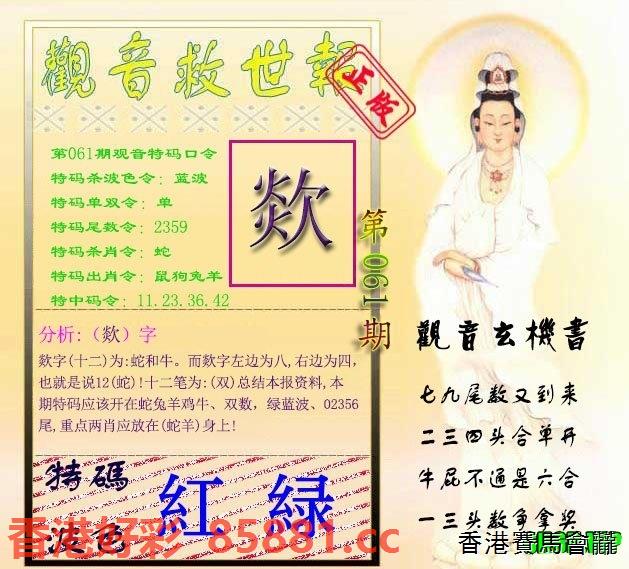 觀音救世報
正版
第061期观音特码口令
特码杀波色令：蓝波
特码单双令：单
特码尾数令：2359
特码杀肖令：蛇
特码出肖令：鼠狗兔羊
特中码令：11.23.36.42
欻
第061期
分析:（欻）字
欻字(十二)为:蛇和牛。而欻字左边为八,右边为四,
也就是说12(蛇)!十二笔为:(双)总结本报资料,本
期特码应该开在蛇兔羊鸡牛、双数，绿蓝波、02356
尾,重点两肖应放在(蛇羊)身上!
觀音玄機書
七九尾数又到来
二三四头合单开
牛屁不通是六合
一三头数争拿奖
特碼
波色
紅 緑
香港好彩 85881.cc
香港賽馬會